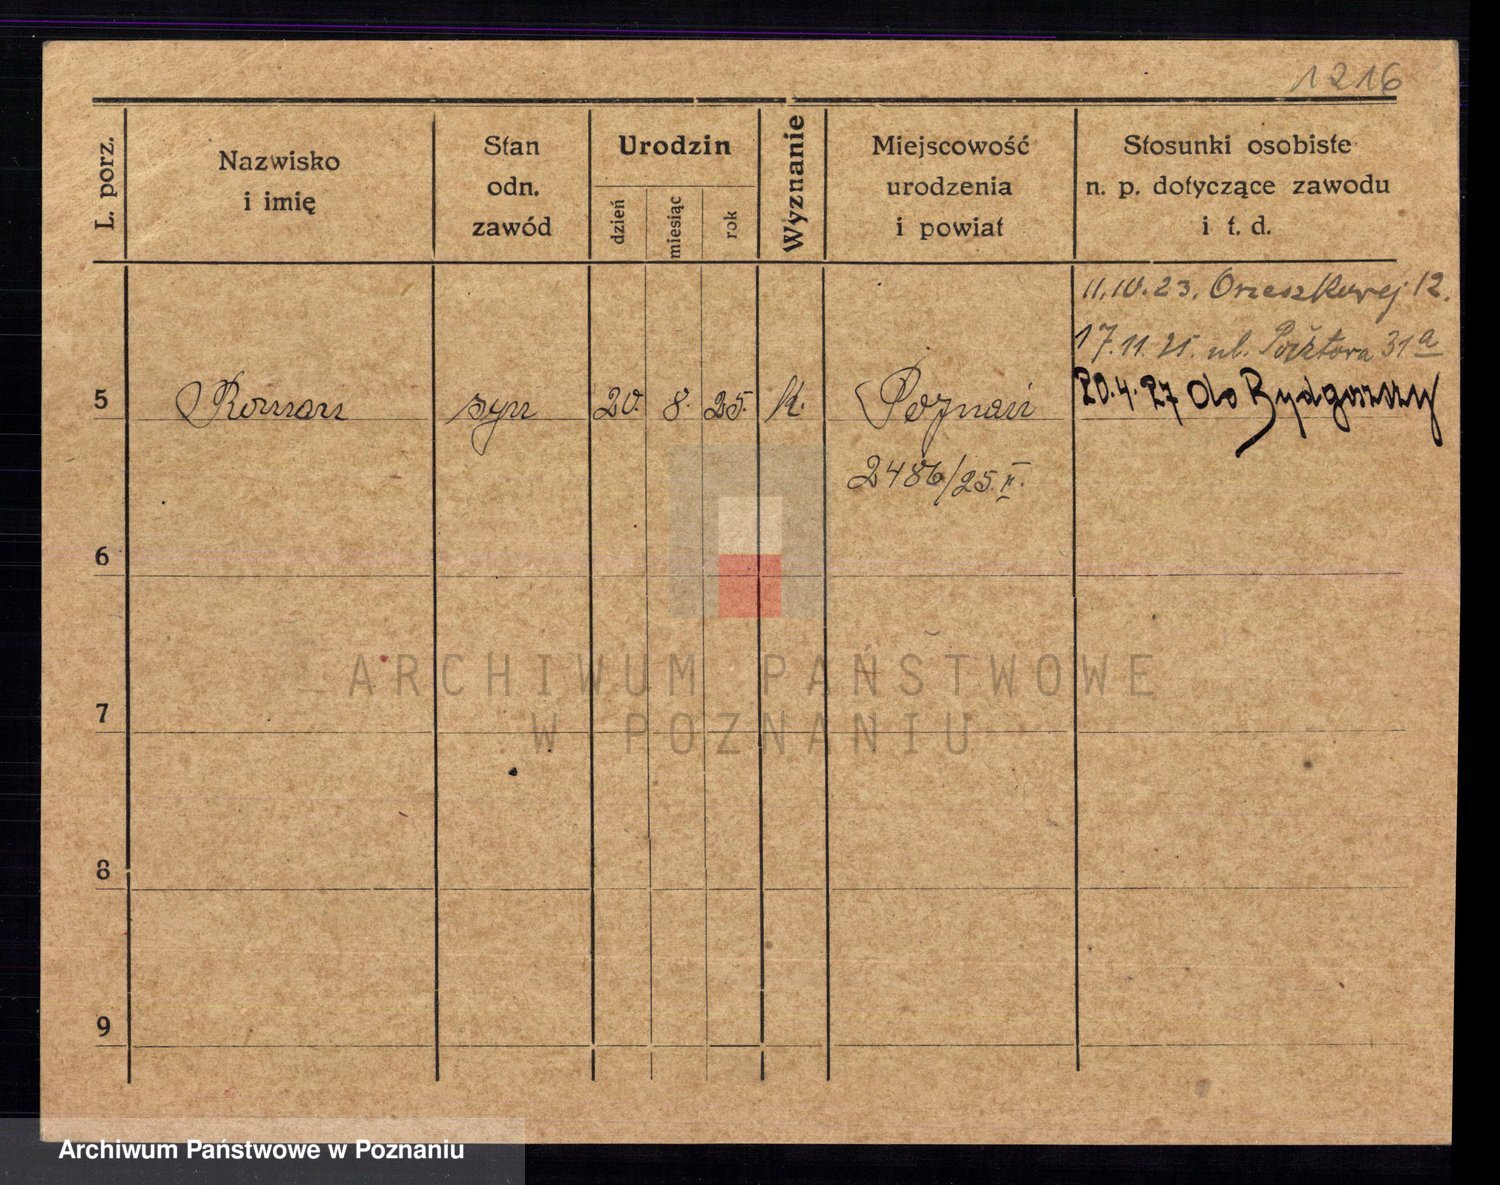 1216
L. porz.
Nazwisko
i imię
Stan
odn.
zawód
Urodzin
dzień
miesiąc
rok
Wyznanie
Miejscowość
urodzenia
i powiat
Stosunki osobiste
n. p. dotyczące zawodu
i t. d.
11.IV.23. Orzeszkowej 12.
17.11.25 ul. 31a
20.4.27 do Bydgoszczy
5 Roman syn 20. 8. 25. k. Poznań
2486/25.II.
6
7
8
9
ARCHIWUM PAŃSTWOWE
W POZNANIU
Archiwum Państwowe w Poznaniu